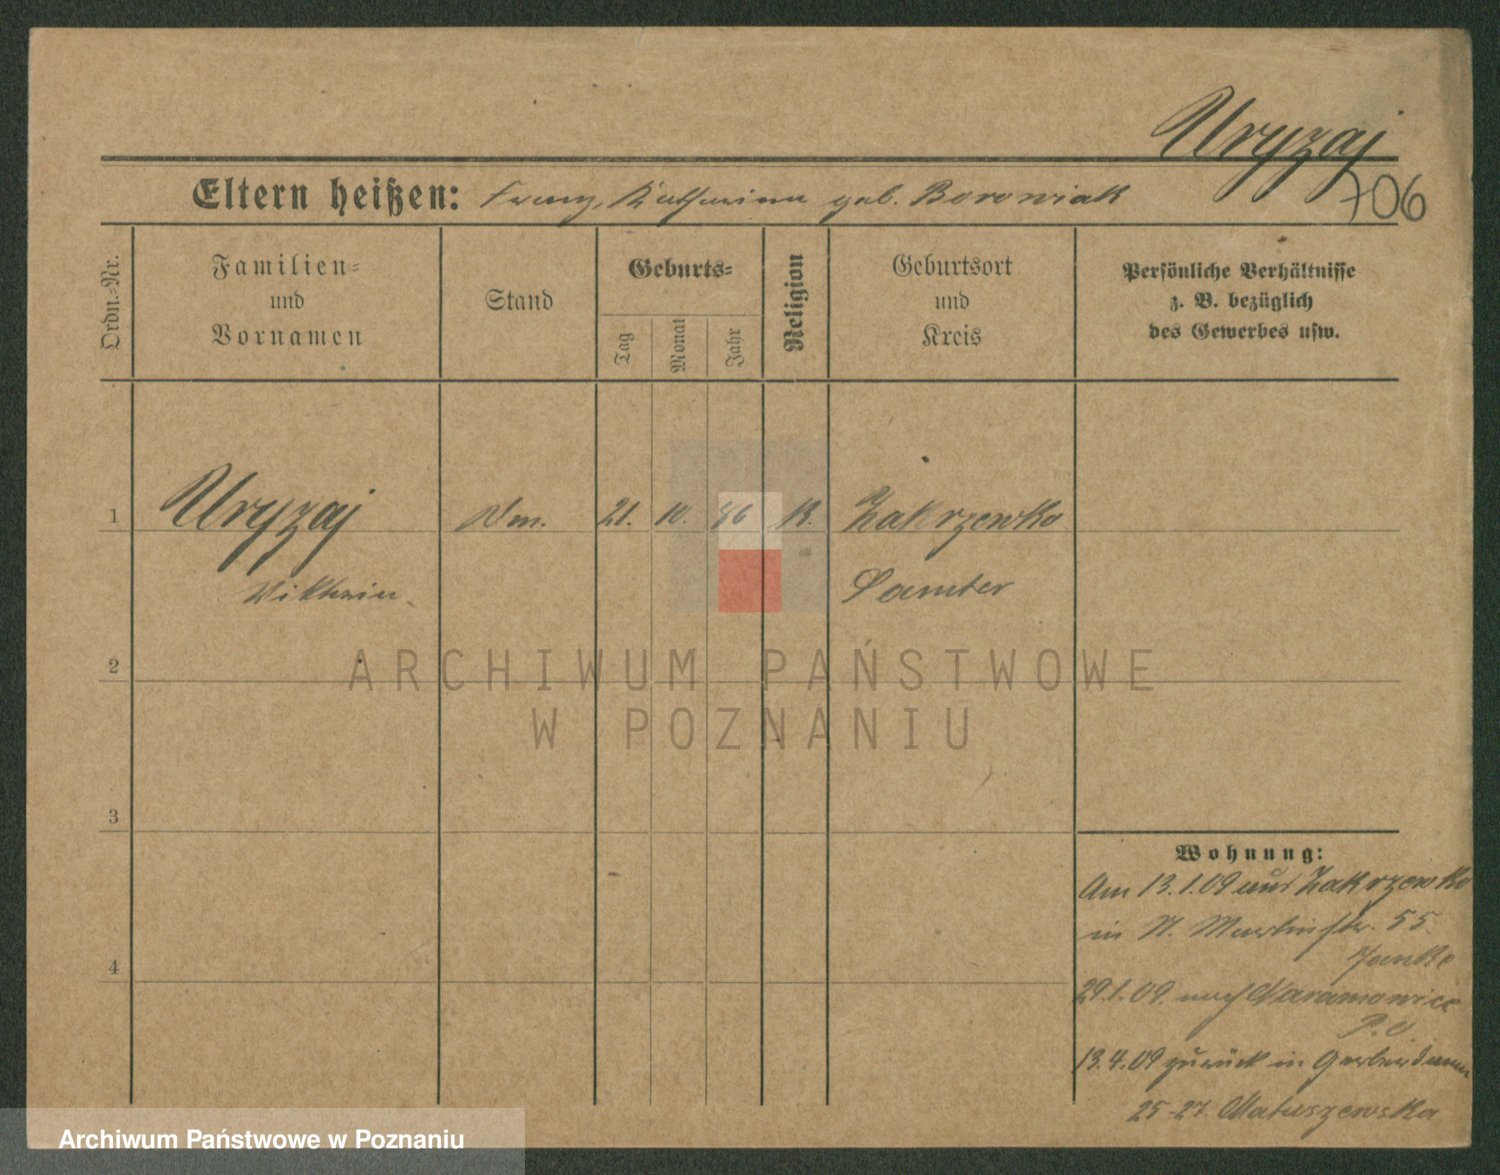 Uryzaj
706
Eltern heißen: Franz, Katharina geb. Borowiak
Ordn.-Nr.
Familien-
und
Vornamen
Stand
Geburts-
Tag
Monat
Jahr
Religion
Geburtsort
und
Kreis
Persönliche Verhältnisse
z. B. bezüglich
des Gewerbes usw.
1 Uryzaj 21. 10. 86 K. Zakrzewko
Viktoria Samter
2
3
4
Wohnung:
Am 13.1.09 aus Zakrzewko
in St. Martinstr. 55
29.1.09. nach Naramowice
P. O
13.4.09 zurück in Gerberdamm
25-27. Matuszewska
ARCHIWUM PAŃSTWOWE
W POZNANIU
Archiwum Państwowe w Poznaniu